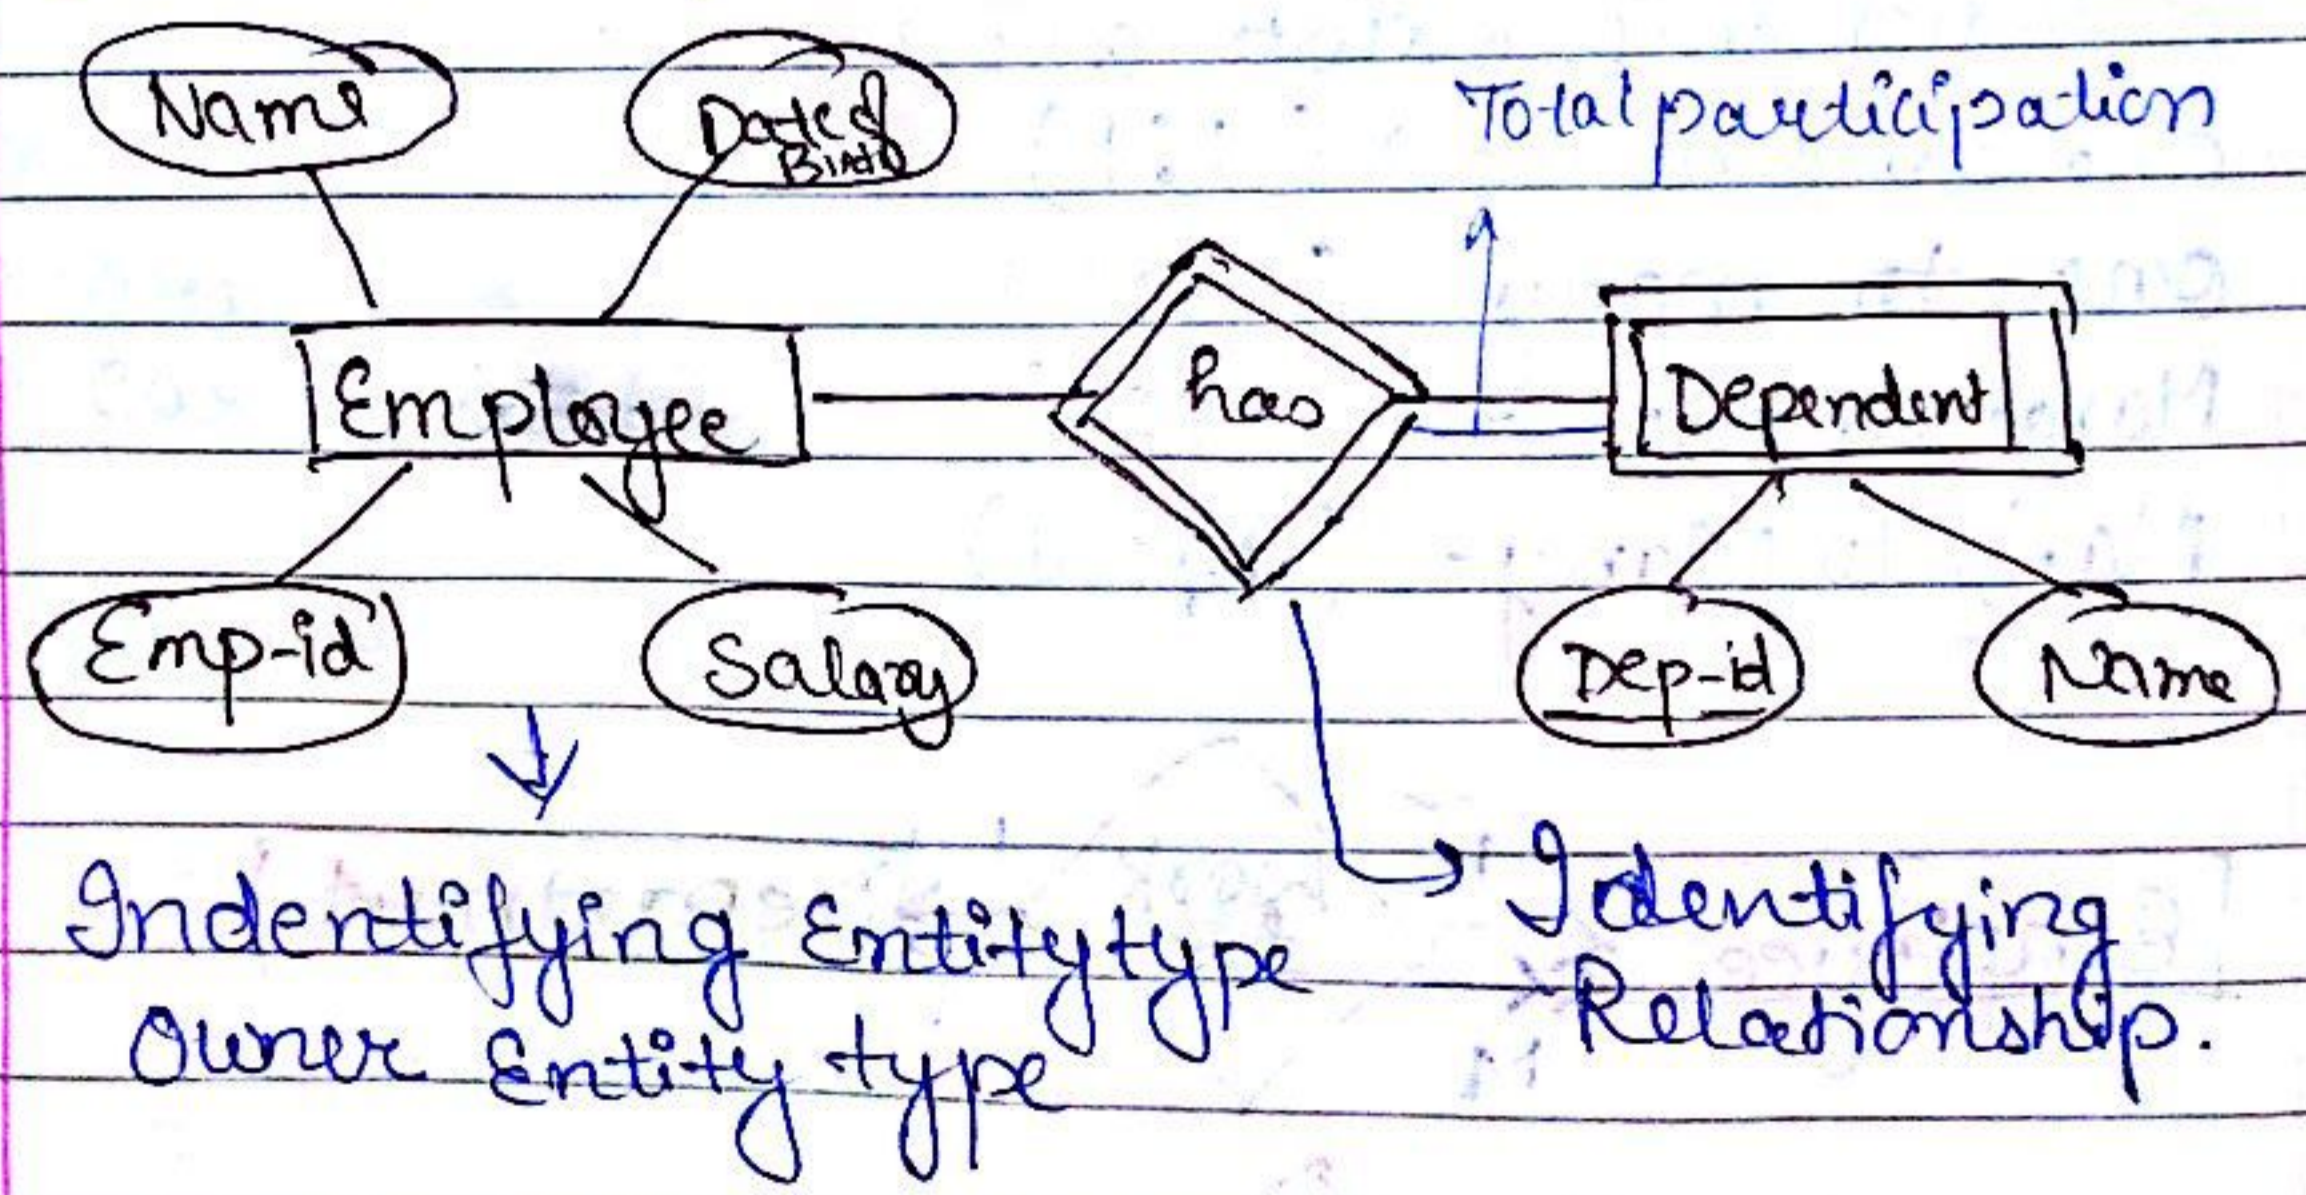 Name
Date of
Birth
Total participation
Employee
has
Dependent
Emp-id
Salary
Dep-id
Name
Indentifying Entity type
Owner Entity type
Identifying
Relationship.